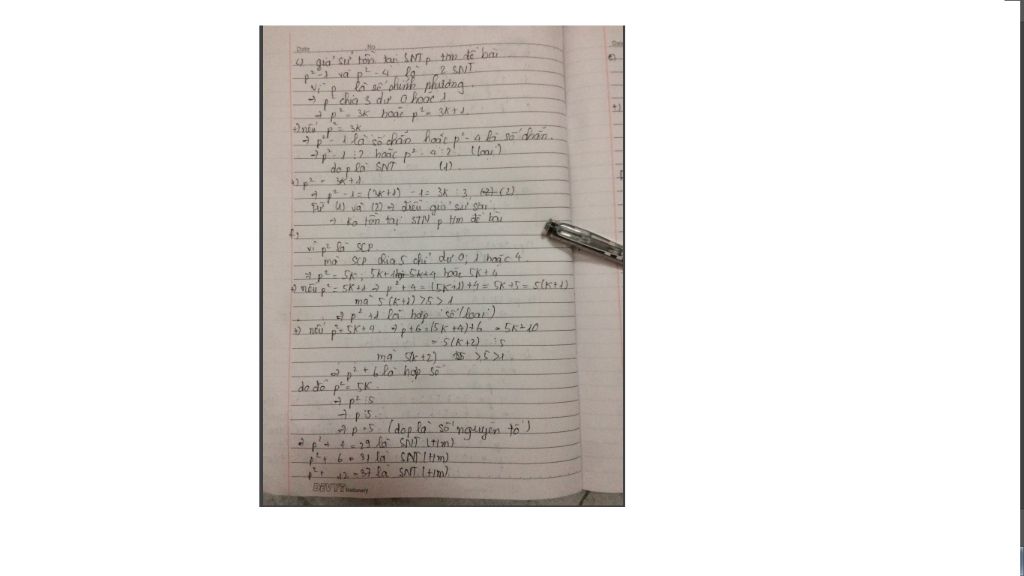 Date No
c) giả sử tồn tại SNT p t/m đề bài
p² - 1 và p² - 4 là 2 SNT
vì p là số chính phương
→ p² chia 3 dư 0 hoặc 1
→ p² = 3k hoặc p² = 3k+1
+) nếu p² = 3k
→ p² - 1 là số chẵn hoặc p² - 4 là số chẵn
→ p² - 1 : 2 hoặc p² - 4 : 2 (loại)
do p là SNT (1)
+) p² = 3k+1
→ p² - 1 = (3k+1) - 1 = 3k : 3 (2)
Từ (1) và (2) → điều giả sử sai
→ ko tồn tại STN p t/m đề bài
f,
vì p² là SCP
mà SCP chia 5 chỉ dư 0, 1 hoặc 4
→ p² = 5k, 5k+1 5k+4 hoặc 5k+4
+) nếu p² = 5k+1 → p² + 4 = (5k+1) + 4 = 5k+5 = 5(k+1)
mà 5(k+1) > 5 > 1
→ p² + 1 là hợp số (loại)
+) nếu p² = 5k+4 → p+6 = (5k+4)+6 = 5k+10
= 5(k+2) : 5
mà 5(k+2) > 5 > 1
→ p² + 6 là hợp số
do đó p² = 5k
→ p² : 5
→ p : 5
→ p = 5 (do p là số nguyên tố)
→ p² + 4 = 29 là SNT (t/m)
p² + 6 = 31 là SNT (t/m)
p² + 12 = 37 là SNT (t/m)
Stationery
Date